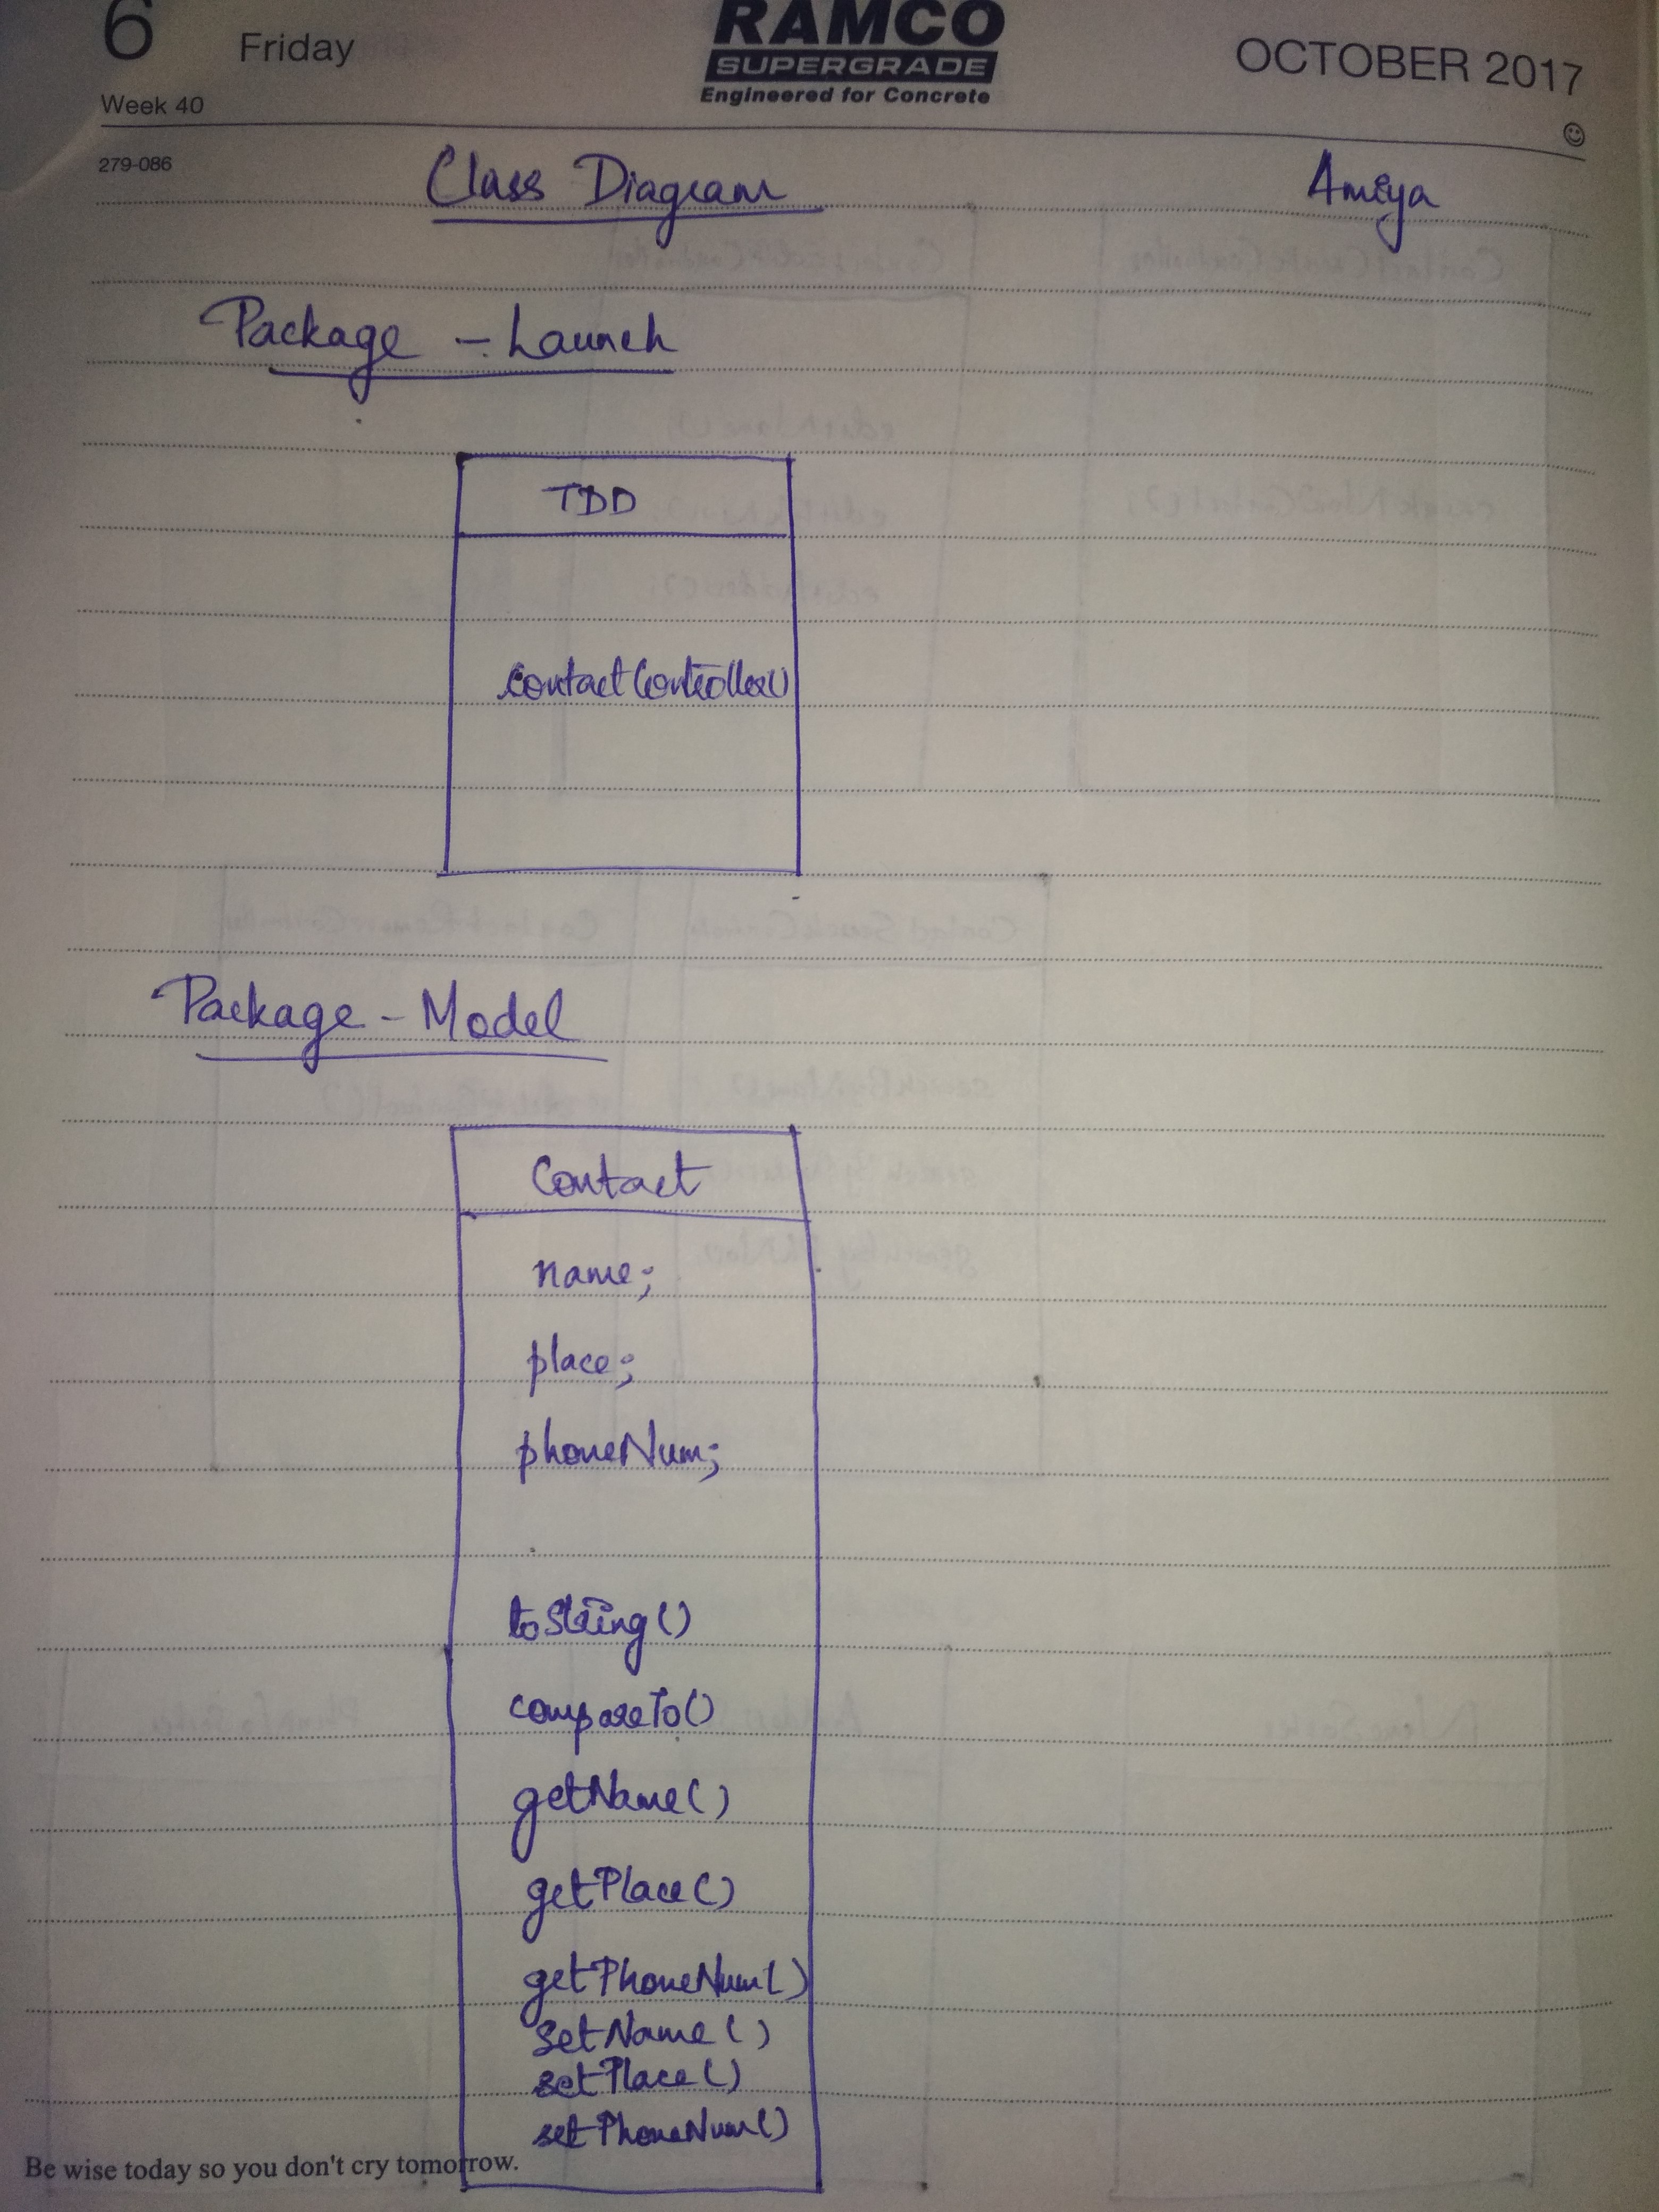 6 Friday
RAMCO
SUPERGRADE
Engineered for Concrete
OCTOBER 2017
Week 40
279-086
Class Diagram
Amiya
Package - Launch
TDD
contactController()
Package - Model
Contact
name;
place;
phoneNum;
toString()
compareTo()
getName()
getPlace()
getPhoneNum()
setName()
setPlace()
setPhoneNum()
Be wise today so you don't cry tomorrow.